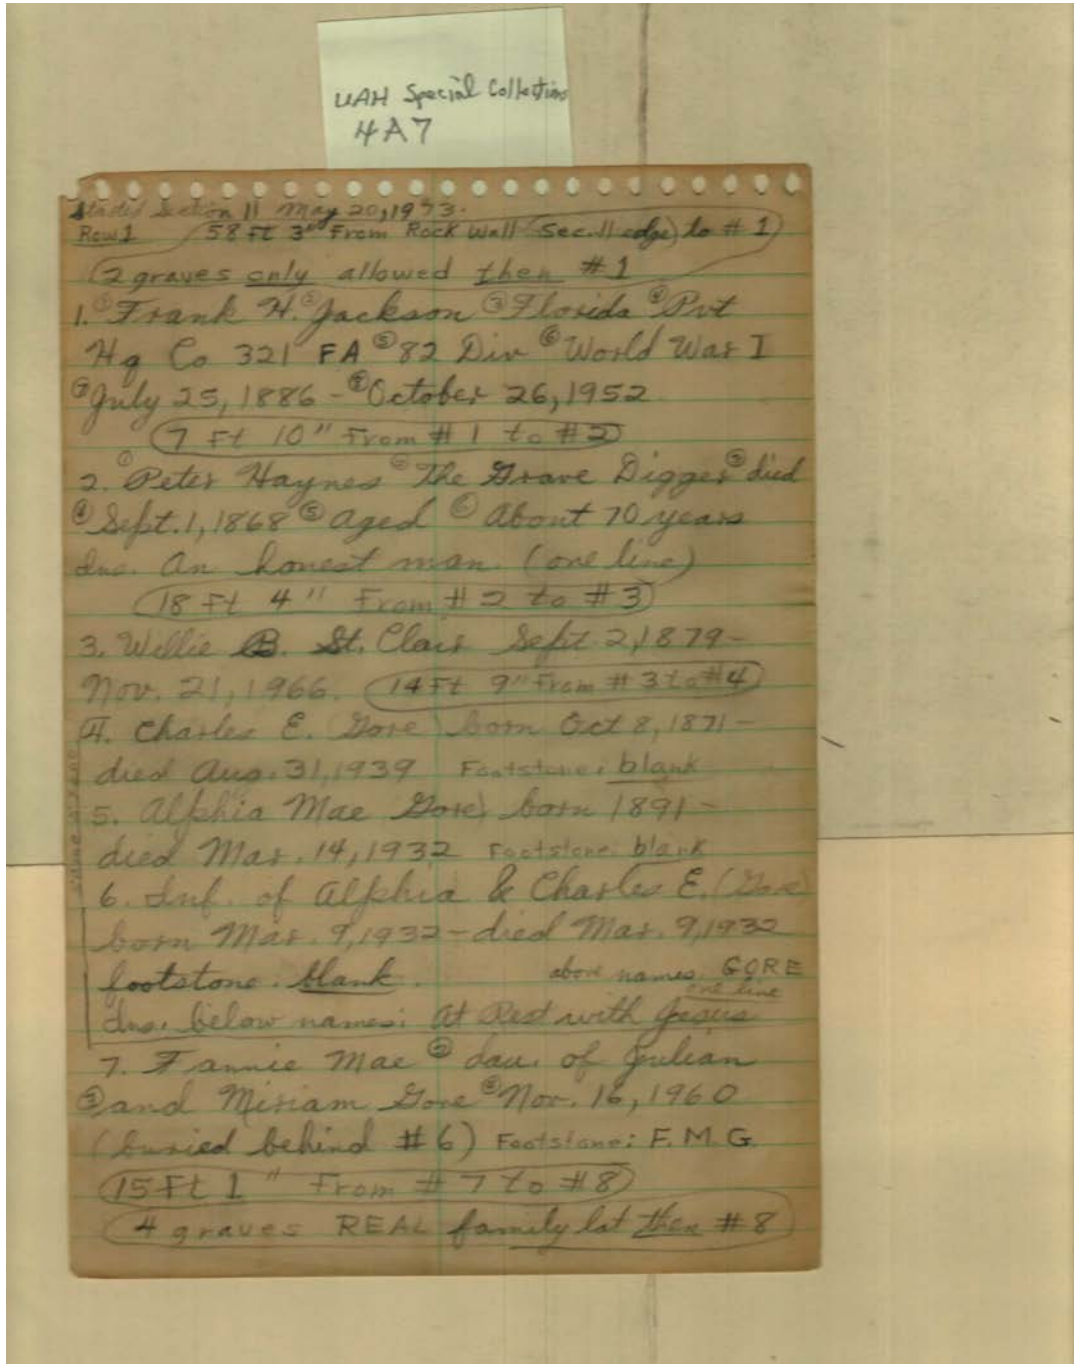 UAH Special Collections
4A7
Started Section 11 May 20, 1973.
Row 1 58 Ft 3" From Rock Wall (Sec. 11 edge) to # 1
(2 graves only allowed then #1
1. ① Frank H. ② Jackson ③ Florida ④ Pvt
Hq Co 321 FA ⑤ 82 Div ⑥ World War I
⑦ July 25, 1886 - ⑧ October 26, 1952
7 Ft 10" From # 1 to #2
2. ① Peter Haynes ② The Grave Digger ③ died
④ Sept. 1, 1868 ⑤ Aged ⑥ About 70 years
Ins. An honest man. (one line)
18 Ft 4" From # 2 to #3
3. Willie B. St. Clair Sept. 2, 1879-
Nov. 21, 1966. 14 Ft 9" From # 3 to #4
4. Charles E. (Gore) born Oct 8, 1871-
died Aug. 31, 1939 Footstone: blank
5. Alphia Mae Gore) born 1891-
died Mar. 14, 1932 Footstone: blank
6. Inf. of Alphia & Charles E. (Gore)
born Mar. 9, 1932 - died Mar. 9, 1932
footstone: blank. above names: GORE
one line
Ins. below names: At Rest with Jesus
7. Fannie Mae ② dau. of Julian
③ and Miriam Gore ④ Nov. 16, 1960
(buried behind #6) Footstone: F. M. G.
15 Ft 1" From # 7 to #8
4 graves REAL family lot then #8